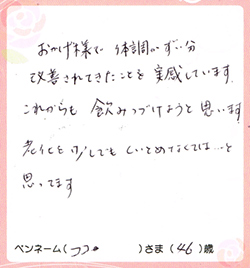 おかげ様で 体調がずい分
改善されてきたことを実感しています
これからも 飲みつづけようと思います
老化を少しでもくいとめなくては…と
思ってます
ペンネーム( ココ )さま(46)歳